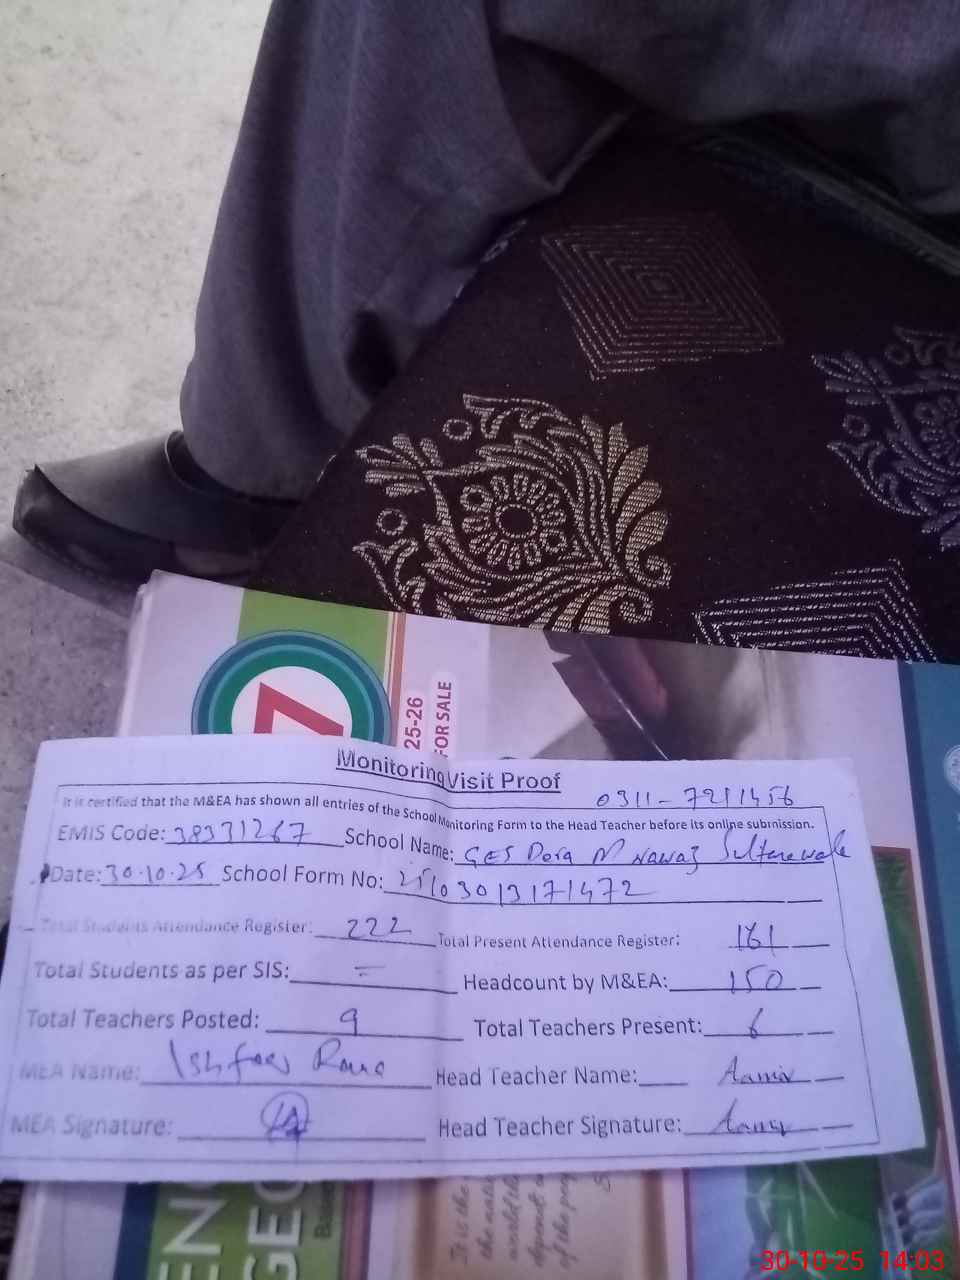 7
25-26
FOR SALE
Monitoring Visit Proof
0311-7211456
It is certified that the M&EA has shown all entries of the School Monitoring Form to the Head Teacher before its online submission.
EMIS Code: 38331267 School Name: GES Dera M Nawaz
Date: 30.10.25 School Form No:
Total Students Attendance Register: 222 Total Present Attendance Register: 161
Total Students as per SIS: = Headcount by M&EA: 150
Total Teachers Posted: 9 Total Teachers Present: 6
MEA Name: Ishfaq Rana Head Teacher Name: Aamir
MEA Signature: Head Teacher Signature: Aamir
EN
GE
It is the
of the
30-10-25 14:03